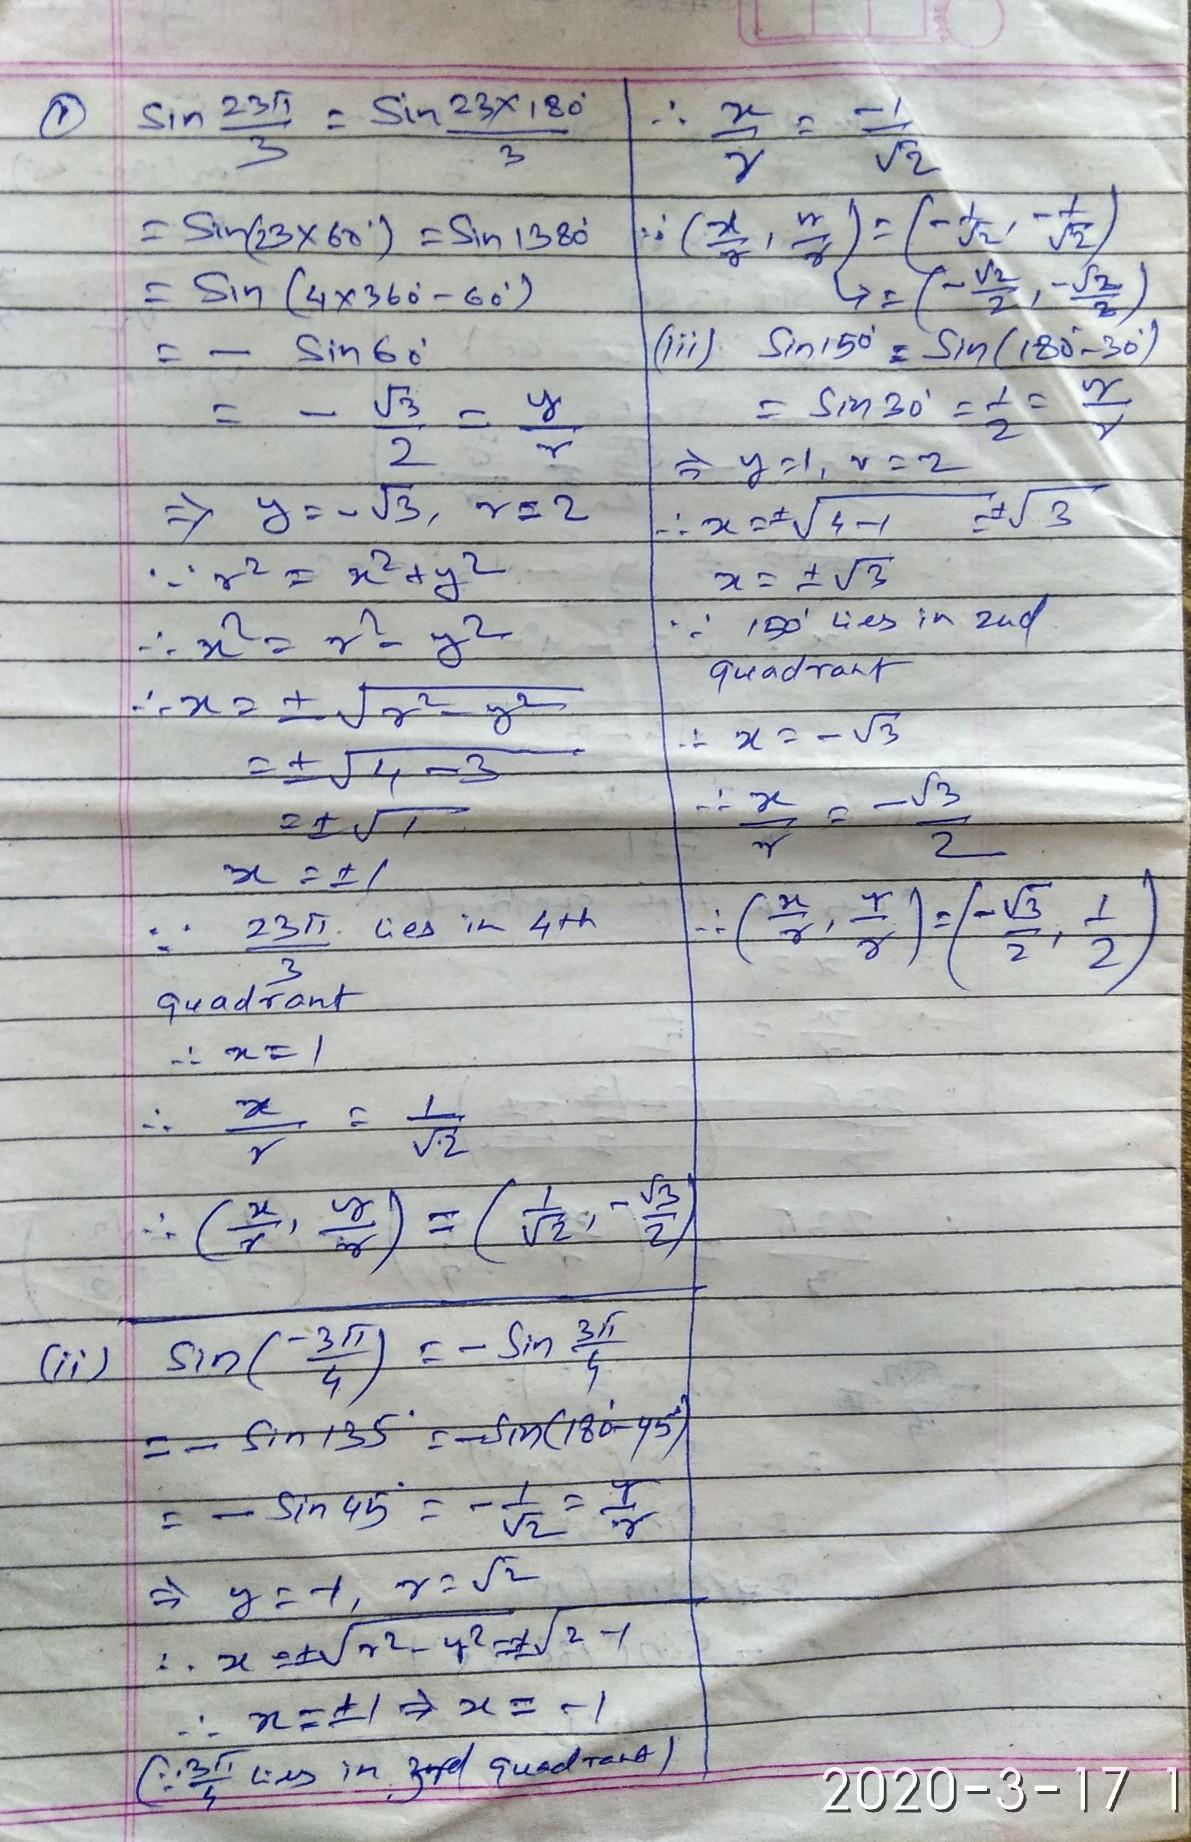 (i) Sin 23π/3 = Sin 23×180°/3
= Sin(23×60°) = Sin 1380°
= Sin (4×360°-60°)
= - Sin60°
= - √3/2 = y/r
⇒ y = -√3, r = 2
∵ r² = x²+y²
∴ x² = r² - y²
∴ x = ± √(r² - y²)
= ± √(4-3)
= ± √1
x = ±1
∵ 23π/3 lies in 4th
quadrant
∴ x = 1
∴ x/r = 1/√2
∴ (x/r, y/r) = (1/√2, -√3/2)
(ii) Sin(-3π/4) = - Sin 3π/4
= - Sin 135° = -Sin(180°-45°)
= - Sin 45° = -1/√2 = y/r
⇒ y = -1, r = √2
∴ x = ±√(r² - y²) = ±√(2-1)
∴ x = ±1 ⇒ x = -1
(∵ 3π/4 lies in 3rd quadrant)
∴ x/r = -1/√2
∴ (x/r, y/r) = (-1/√2, -1/√2)
↳ = (-√2/2, -√2/2)
(iii) Sin150° = Sin(180°-30°)
= Sin30° = 1/2 = y/r
⇒ y = 1, r = 2
∴ x = ±√(4-1) = ±√3
x = ±√3
∵ 150° lies in 2nd
quadrant
∴ x = -√3
∴ x/r = -√3/2
∴ (x/r, y/r) = (-√3/2, 1/2)
2020-3-17 1